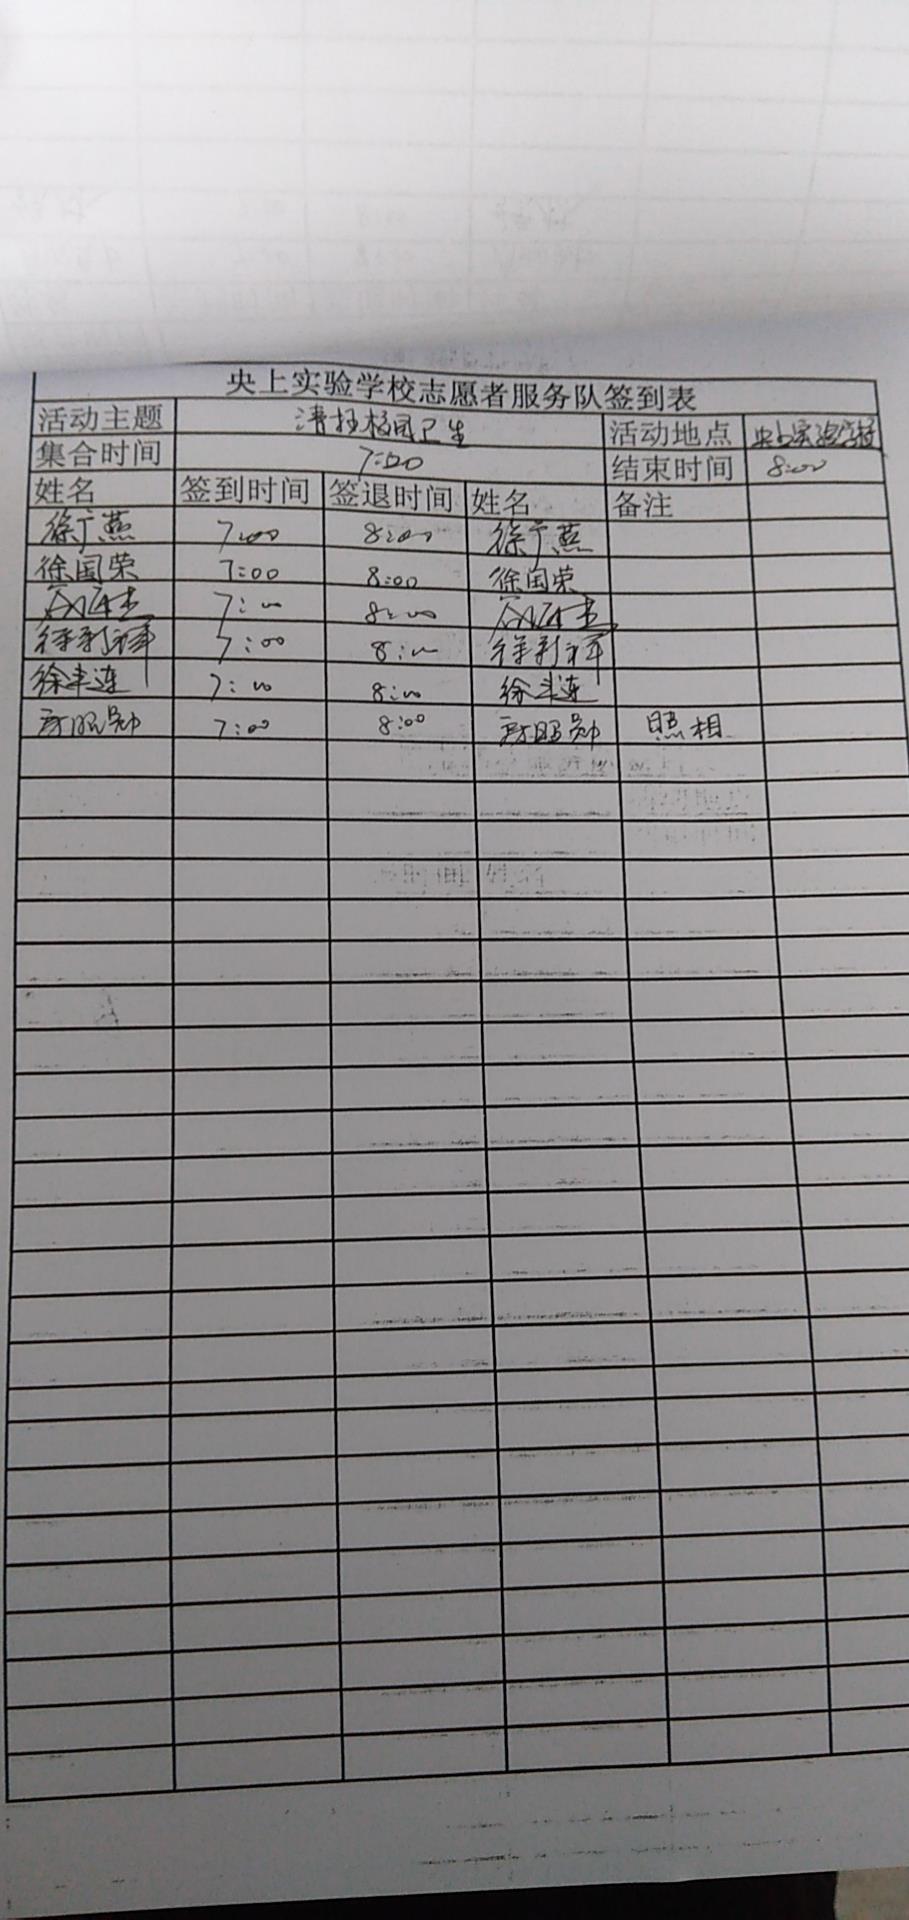 央上实验学校志愿者服务队签到表
活动主题 清扫校园卫生 活动地点 央上实验学校
集合时间 7:00 结束时间 8:00
姓名 签到时间 签退时间 姓名 备注
徐广燕 7:00 8:00 徐广燕
徐国荣 7:00 8:00 徐国荣
7:00 8:00
7:00 8:00
徐丰连 7:00 8:00 徐丰连
7:00 8:00 照相